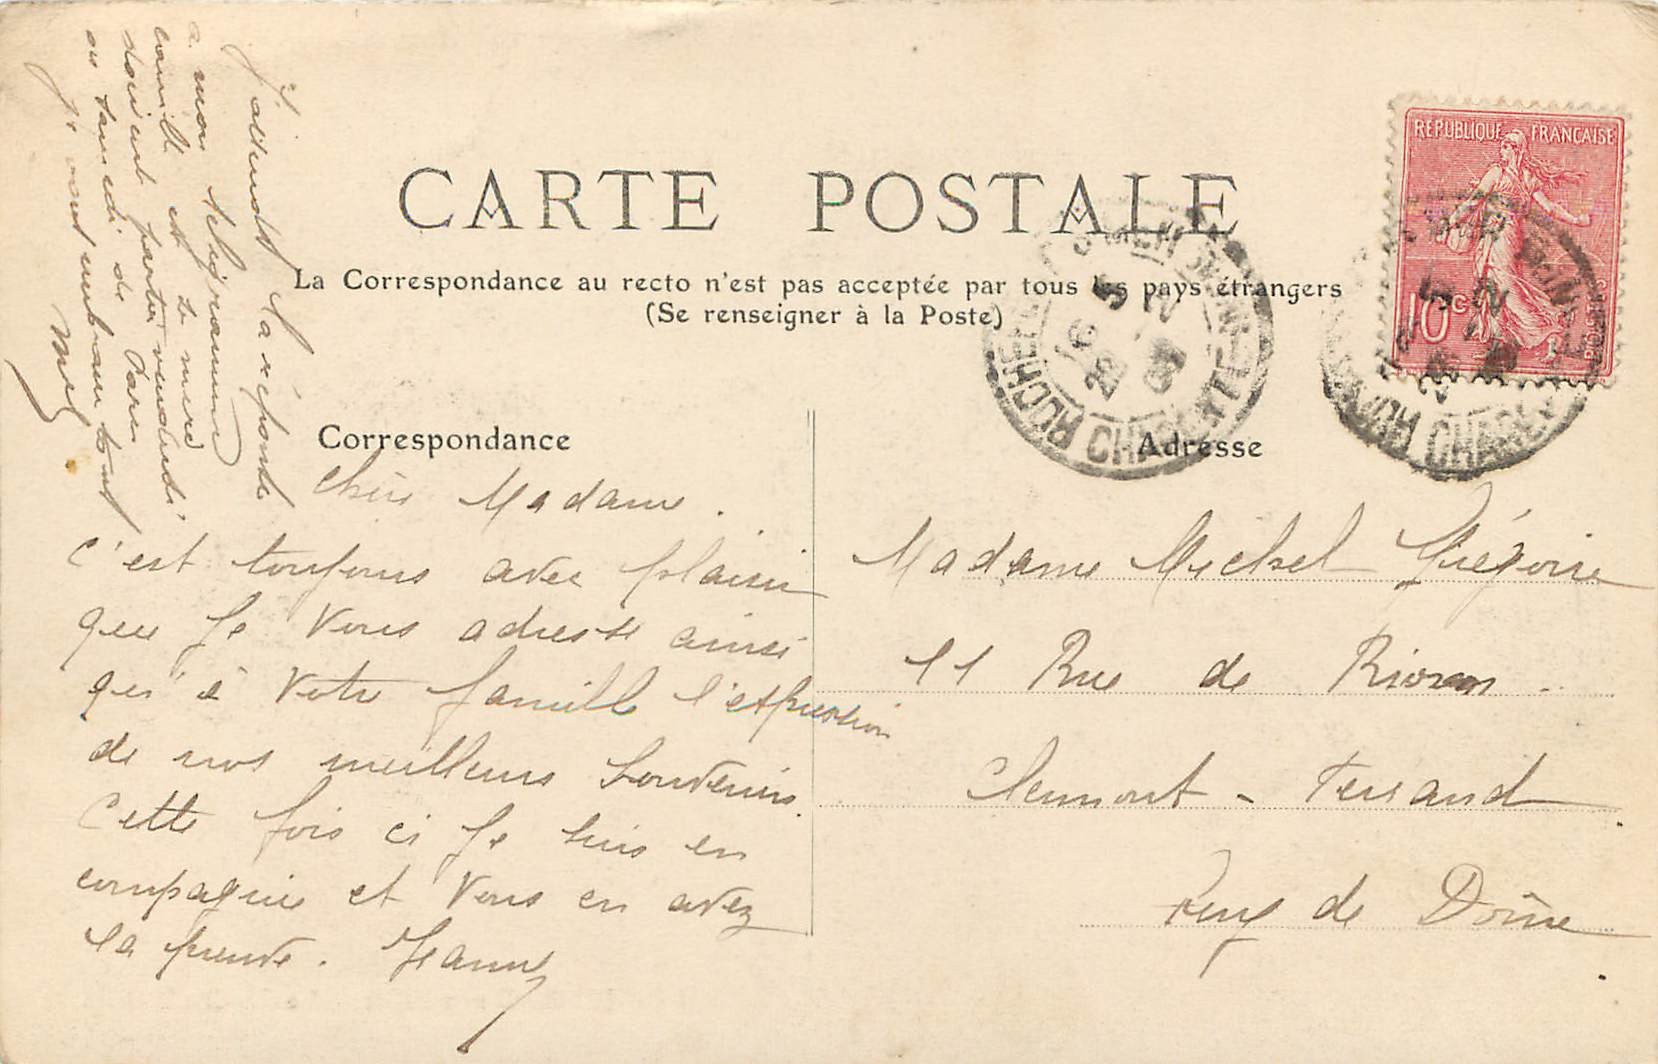 CARTE POSTALE
La Correspondance au recto n'est pas acceptée par tous les pays étrangers
(Se renseigner à la Poste)
REPUBLIQUE FRANÇAISE
10c
POSTES
Correspondance
Chère Madame.
C'est toujours avec plaisir
que je vous adresse ainsi
qu'à votre famille l'expression
de nos meilleurs souvenirs.
Cette fois ci je suis en
compagnie et vous en avez
la preuve. Jeanne
J'attends la réponse
a mon télégramme
Camille et sa mère
doivent partir vendredi
ou samedi de Paris
je vous embrasse tous
Adresse
Madame Michel Grégoire
11 Rue de Riom.
Clermont-Ferrand
Puy de Dôme